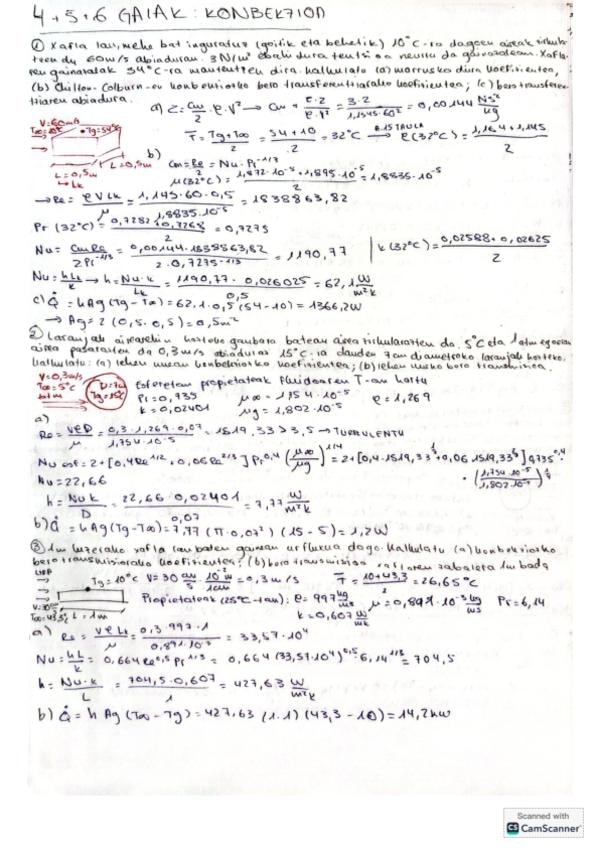 4.5.6 GAIAK: KONBEKZIOA
① Xafla lau, mehe bat inguratuz (goitik eta behetik) 10°C-ra dagoen aireak zirkula-
tzen du 60m/s abiaduran. 3N/m² ebakidura tentsioa neurtu da gainazalean. Xafla-
ren gainazalak 54°C-ra mantentzen dira. Kalkulatu (a) marruskadura koefizientea,
(b) Chilton-Colburn konbekziozko bero transferentziarako koefizientea; (c) bero transferen-
tziaren abiadura.
V=60m/s
T∞=10°C
Tg=54°C
L=0,5m
L=0,5m
→ Lk
a) Z = Cm/2 · ρ · V² → Cm = 2·Z/ρ·V² = 3·2/1,1545·60² = 0,00144 Ns²/kg
T̄ = Tg+T∞/2 = 54+10/2 = 32°C → A.15 TAULA ρ(32°C) = 1,164+1,145/2
b) Cm=Re/2 = Nu·Pr^-1/3
μ(32°C) = 1,872·10^-5 + 1,895·10^-5/2 = 1,8835·10^-5
→ Re = ρ V Lk/μ = 1,145·60·0,5/1,8835·10^-5 = 1838863,82
Pr (32°C) = 0,7282+0,7268/2 = 0,7275
Nu = Cm Re/2 Pr^-1/3 = 0,00144·1838863,82/2·0,7275^-1/3 = 1190,77
k(32°C) = 0,02588+0,02625/2
Nu = h Lk/k → h = Nu·k/Lk = 1190,77·0,026025/0,5 = 62,1 W/m²K
c) Q̇ = h Ag (Tg-T∞) = 62,1·0,5 (54-10) = 1366,2W
→ Ag = 2 (0,5·0,5) = 0,5m²
② Laranjak airearekin hozteko ganbara batean airea zirkularazten da. 5°C eta 1atm egoeran
airea pasarazten da 0,3m/s abiaduraz 15°C-ra dauden 7cm diametroko laranjak hozteko.
Kalkulatu: (a) konbekziozko koefizientea; (b) bero transmisioa.
V=0,3m/s
T∞=5°C
1atm
D=7cm
Tg=15°C
Esferetan propietateak fluidoaren T-an hartu
Pr=0,735
k=0,02401
μ∞=1,754·10^-5
μg=1,802·10^-5
ρ=1,269
a)
Re = VρD/μ = 0,3·1,269·0,07/1,754·10^-5 = 1519,33 > 3,5 → TURBULENTU
Nu esf = 2+[0,4Re^1/2 + 0,06Re^2/3] Pr^0,4 (μ∞/μg)^1/4 = 2+[0,4·1519,33^½+0,06·1519,33^⅔] 0,735^0,4 · (1,754·10^-5/1,802·10^-5)^¼
Nu=22,66
h = Nu k/D = 22,66·0,02401/0,07 = 7,77 W/m²K
b) Q̇ = h Ag (Tg-T∞) = 7,77 (π·0,07²) (15-5) = 1,2W
③ 1m luzerako xafla lau baten gainean ur fluxua dago. Kalkulatu (a) konbekziozko
bero transmisiorako koefizientea; (b) bero transmisioa xaflaren zabalera 1m bada
URA
V=30
T∞=43,3°C
L=1m
Tg=10°C V=30 cm/s · 10^-2 m/1cm = 0,3m/s
T̄ = 10+43,3/2 = 26,65°C
Propietateak (25°C-tan): ρ=997 kg/m³ μ=0,891·10^-3 kg/ms Pr=6,14
k=0,607 W/mK
a) Re = V ρ Lk/μ = 0,3·997·1/0,891·10^-3 = 33,57·10⁴
Nu = hL/k = 0,664Re^0,5 Pr^1/3 = 0,664 (33,57·10⁴)^0,5 · 6,14^1/3 = 704,5
h = Nu·k/L = 704,5·0,607/1 = 427,63 W/m²K
b) Q̇ = h Ag (T∞-Tg) = 427,63 (1·1) (43,3-10) = 14,2kW
Scanned with
CS CamScanner